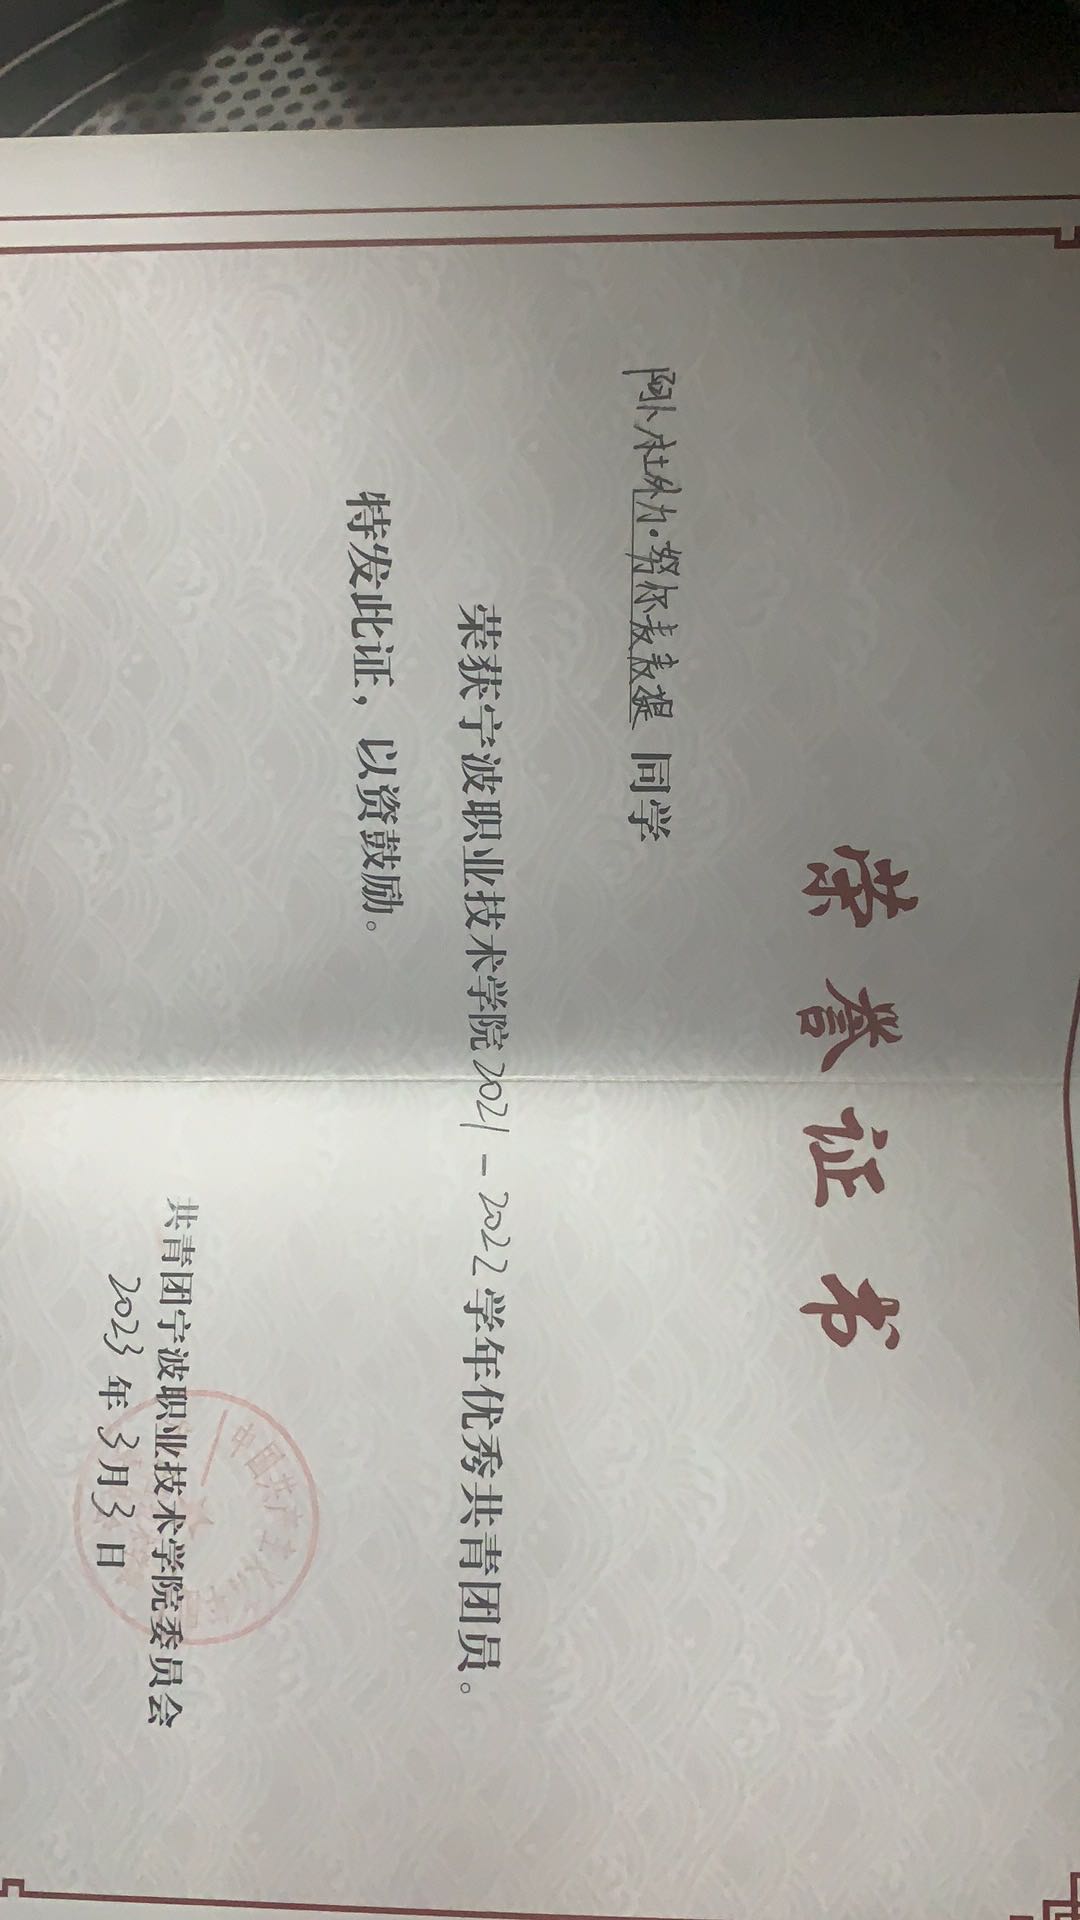 荣誉证书
阿卜杜外力·努尔麦麦提 同学
荣获宁波职业技术学院2021-2022学年优秀共青团员。
特发此证，以资鼓励。
共青团宁波职业技术学院委员会
2023年3月3日
中国共产主义青年团